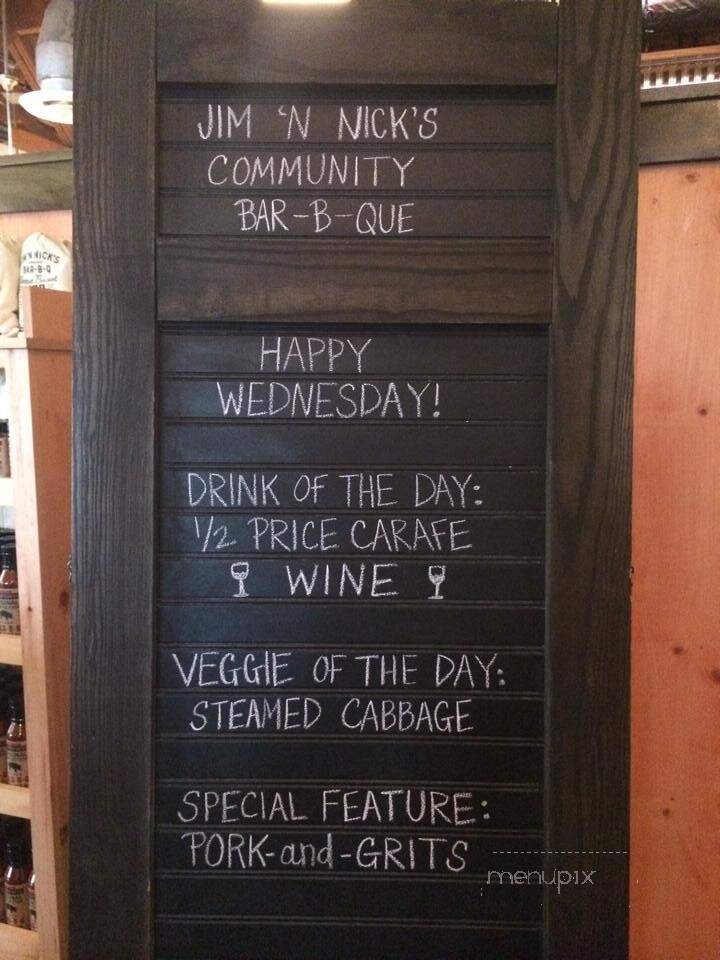 JIM 'N NICK'S
COMMUNITY
BAR-B-QUE
HAPPY
WEDNESDAY!
DRINK OF THE DAY:
1/2 PRICE CARAFE
WINE
VEGGIE OF THE DAY:
STEAMED CABBAGE
SPECIAL FEATURE:
PORK-and-GRITS
menupix
'N NICK'S
BAR-B-Q